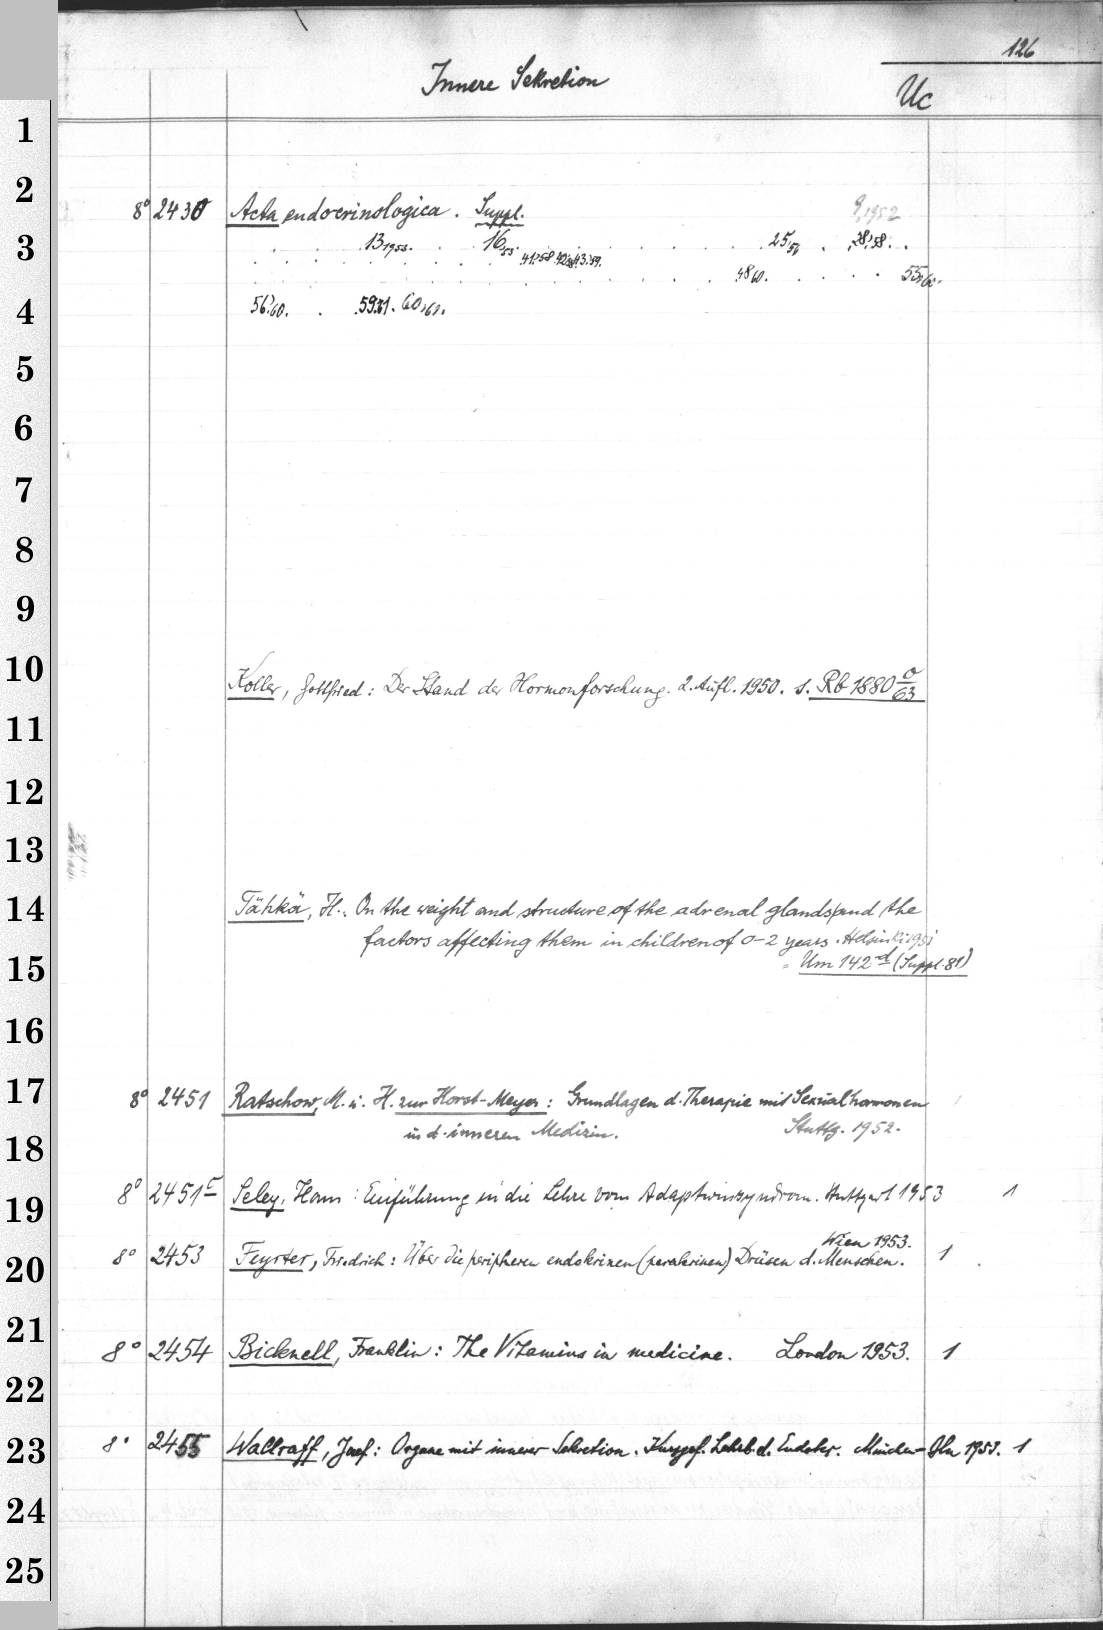 126
Innere Sekretion
Uc
1
2
8° 2430 Acta endocrinologica. Suppl. 9,1952
3
13 1953. 16,53. 25,56 28,58.
41,58 42,58 43,59. 48,60. 55,60.
4
56,60. 59,61. 60,61.
5
6
7
8
9
10
Koller, Gottfried: Der Stand der Hormonforschung. 2. Aufl. 1950. s. Rb 1880 o/63
11
12
13
14
Tähkä, H.: On the weight and structure of the adrenal glands and the
factors affecting them in children of 0-2 years. Helsinki 1951
15
= Um 142 d (Suppl. 81)
16
17
8° 2451 Ratschow, M. u. H. zur Horst-Meyer: Grundlagen d. Therapie mit Sexualhormonen
in d. inneren Medizin. Stuttg. 1952.
18
8° 2451 c Seley, Hans: Einführung in die Lehre vom Adaptionssyndrom. Stuttgart 1953 1
19
Wien 1953.
8° 2453 Feyrter, Friedrich: Über die peripheren endokrinen (parakrinen) Drüsen d. Menschen. 1
20
21
8° 2454 Bicknell, Franklin: The Vitamins in medicine. London 1953. 1
22
23
8° 2455 Wallraff, Josef: Organe mit innerer Sekretion. Kurzgef. Lehrb. d. Endokr. München-Bln 1953. 1
24
25